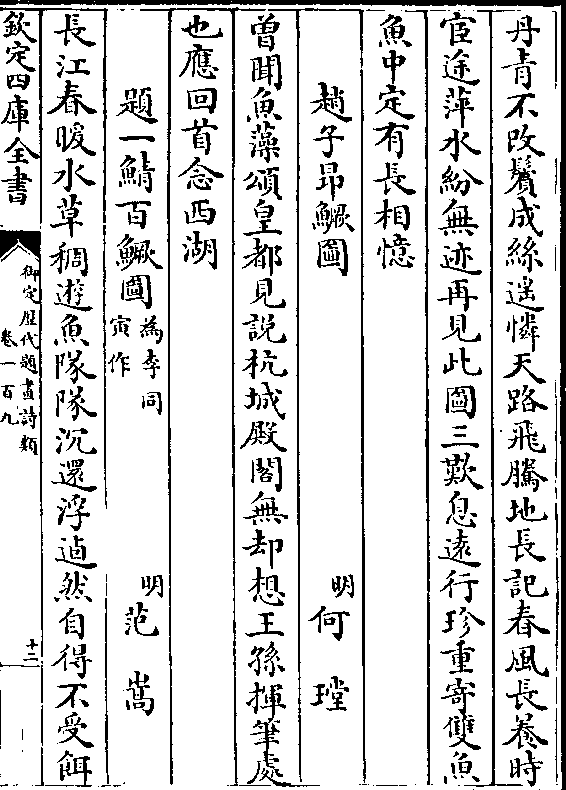 丹青不改鬢成絲遙憐天路飛騰地長記春風長養時
宦途萍水紛無迹再見此圖三歎息逺行珍重寄雙魚
魚中定有長相憶
趙子昻鱖圖
明何瑭
曽聞魚藻頌皇都見説杭城殿閣無却想王孫揮筆處
也應回首念西湖
題一鯖百鱖圖為李同寅作
明范嵩
長江春暖水草稠遊魚隊隊沉還浮逌然自得不受餌
欽定四庫全書
御定歴代題畫詩類
卷一百九
十二